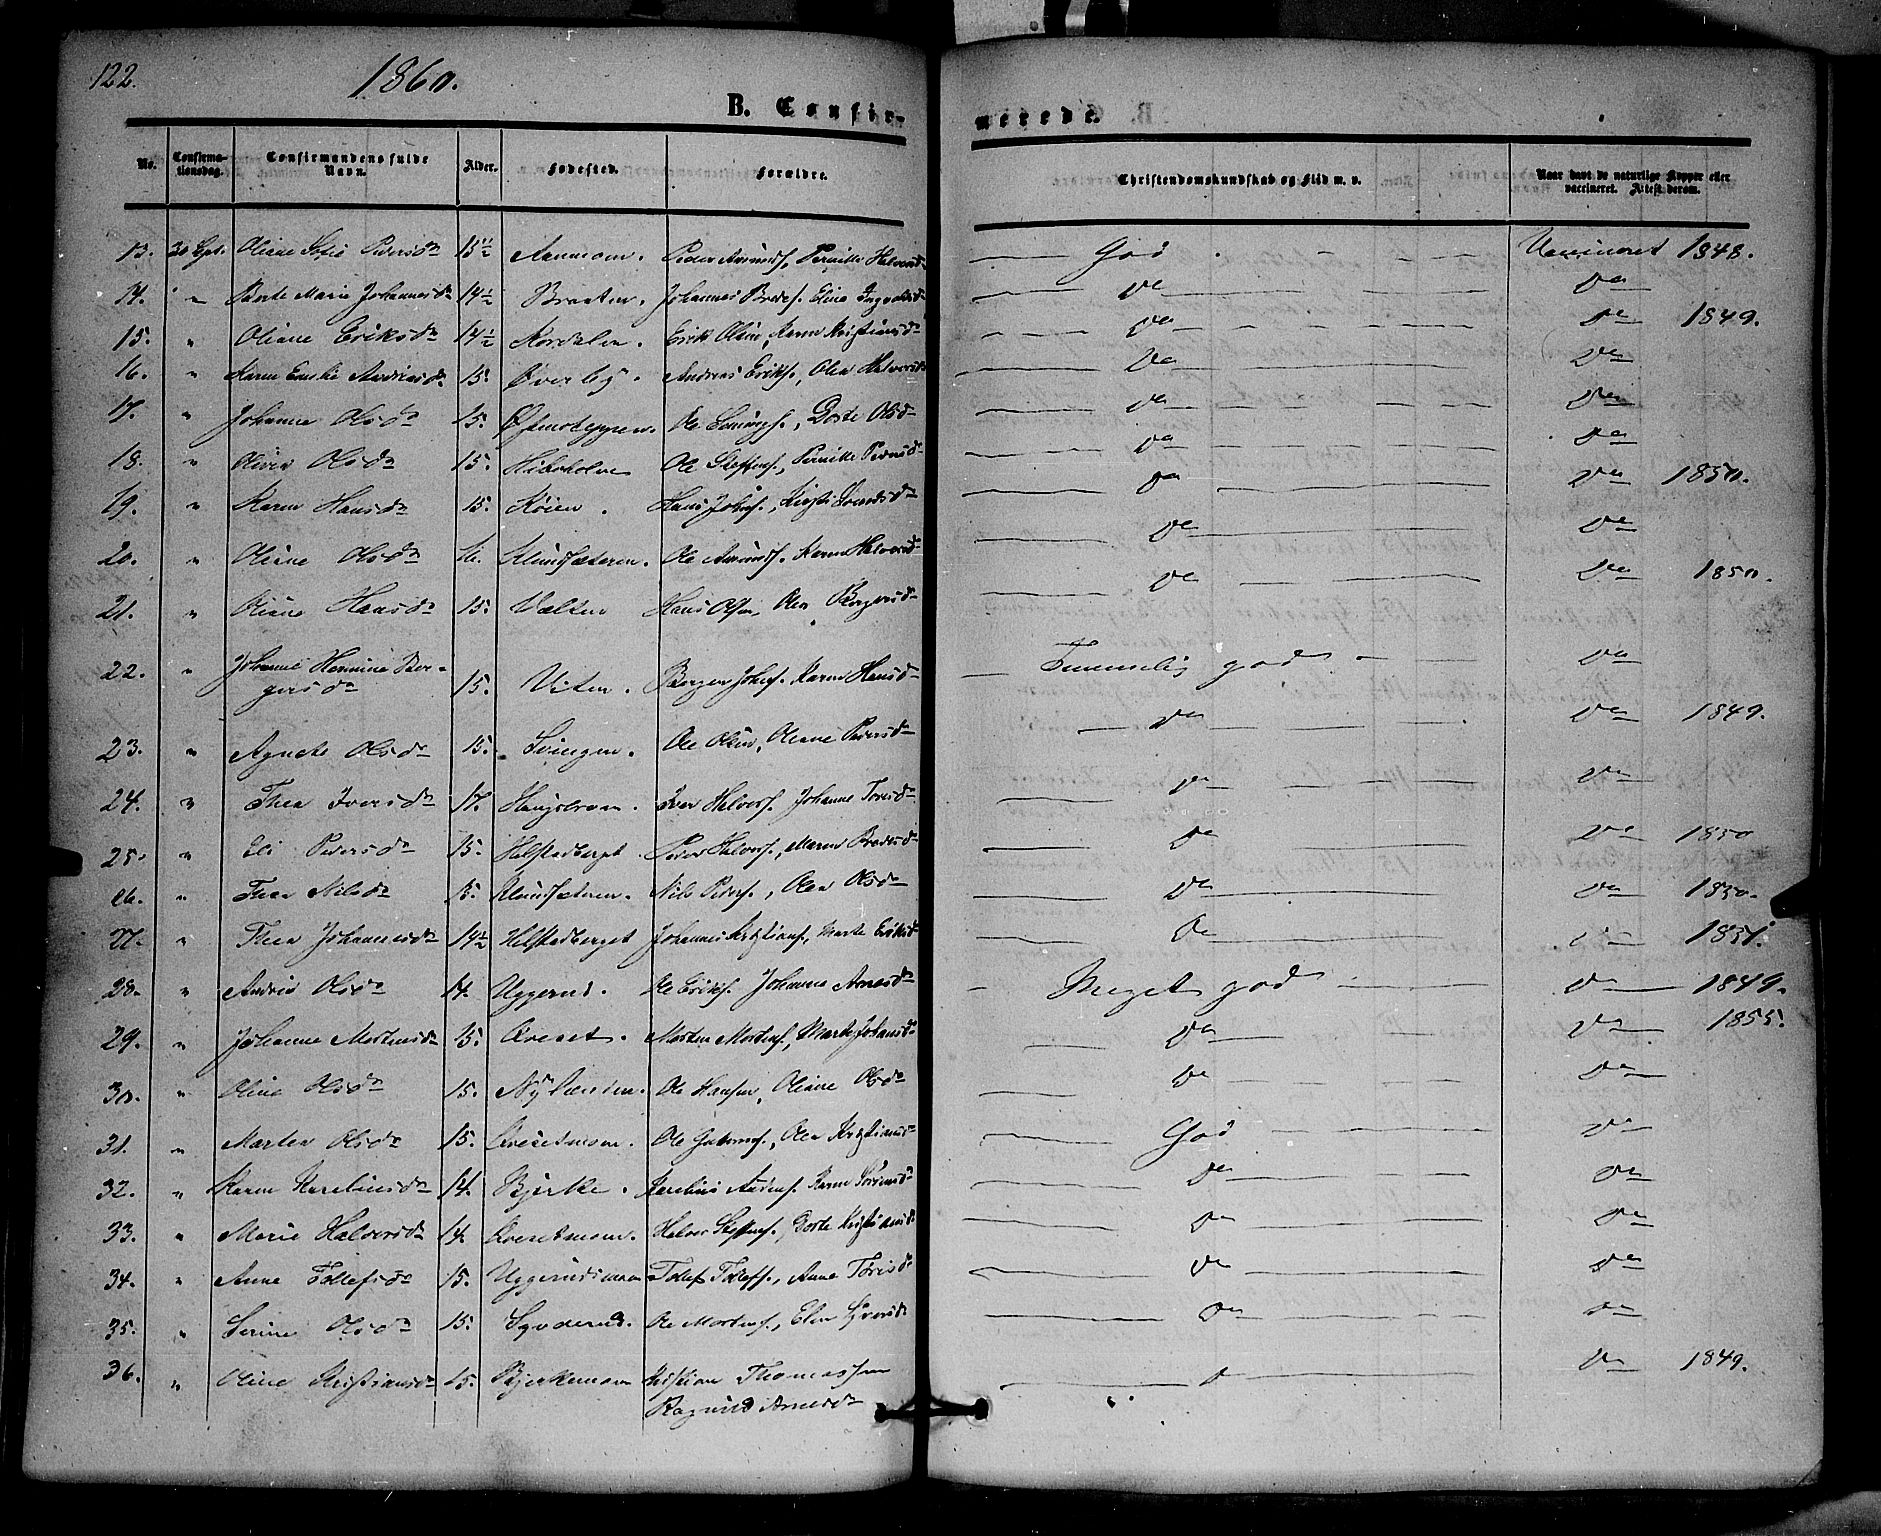 122.
1860.
B. Confir-
merede.
No.
Confirma-
tionsdag.
Confirmandens fulde
Navn.
Alder.
Fødested.
Forældre.
Christendomskundskab og Flid m. v.
Naar havt de naturlige Kopper eller
vaccineret. Attest derom.
13. 30 Spt. Oliane Sofie Pedersdr 15 1/2 Aanmoen. Peder Amunds., Pernille Halvorsdr God Vaccineret 1848.
14. " Berte Marie Johannesdr 14 1/2 Braaten. Johannes Breds. Eline Ingvaldsdr Do Do
15. " Oliane Eriksdr 14 1/2 Nordalen. Erik Olsen, Karen Kristiansdr Do Do 1849.
16. " Karen Emilie Andreasdr 15. Øverby. Andreas Eriks., Olea Halvorsdr Do Do
17. " Johanne Olsdr 15. Ole, Dorte Olsdr Do Do
18. " Olivia Olsdr 15. Ole Steffens., Pernille Pedersdr Do Do
19. " Karen Hansdr 15. Køien. Hans Johs., Kirsti Do Do 1850.
20. " Oliane Olsdr 16. Klundsæteren. Ole Amunds. Karen Halvorsdr Do Do
21. " Oliane Hansdr 15. Valten Hans Olsen, Olea Borgersdr Do Do 1850.
22. " Johanne Hermine Bor-
gersdr 15. Viten. Borger Johs. Karen Hansdr Temmelig god Do
23. " Agnete Olsdr 15. Svingen. Ole Olsen, Oliane Pedersdr Do Do 1849.
24. " Thea Iversdr 17. Iver Halvors. Johanne Toresdr Do Do
25. " Eli Pedersdr 15. Helstadberget. Peder Halvors., Maren Bredesdr Do Do 1850
26. " Thea Nilsdr 15. Klundsæteren. Nils Peders., Olea Olsdr Do Do 1850.
27. " Thea Johannesdr 14 1/2 Helstadberget Johannes Kristians., Marte Eriksdr Do 1851.
28. " Andrea Olsdr 14. Uggerud. Ole Eriks. Johanne Arnesdr Meget god Do 1849.
29. " Johanne Mortensdr 15. Qveset. Morten Mortens., Marte Johansdr Do Do 1855.
30. " Oline Olsdr 15. Nylænden. Ole Hansen, Oliane Olsdr Do Do
31. " Marten Olsdr 15. Qvesetmoen. Ole, Olea Kristiansdr God Do
32. " Karen Karelinsdr 14. Bjerke. Karelius Anders. Karen Sørensdr Do Do
33. " Marie Halvorsdr 14. Qvesetmoen. Halvor Steffens., Dorte Kristiansdr Do Do
34. " Anne Tollefsdr 15. Uggerudsmoen Tollef Tollefs., Anne Torisdr Do Do
35. " Serine Olsdr 15. Syverud. Ole Mortens., Elen Syversdr Do Do
36. " Oline Kristiansdr 15. Bjerkemoen Kristian Thomassen
Ragnild Arnesdr Do Do 1849.